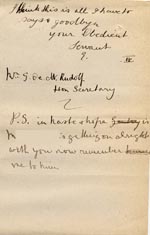 I think this is all I have to
say & goodbye
your obedient
Servant
Mr G. de M. Rudolf
Hon Secretary
P.S. in haste I hope
is getting on alright
with you now remember
me to him